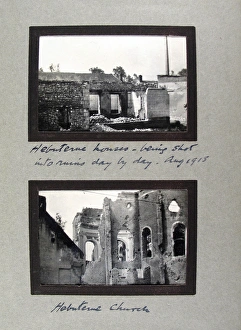 Hebuterne houses - being shot
into ruins day by day - Aug 1915
Hebuterne Church